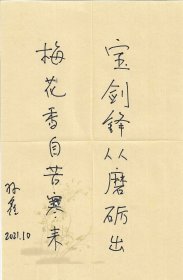 宝剑锋从磨砺出
梅花香自苦寒来
2021.10